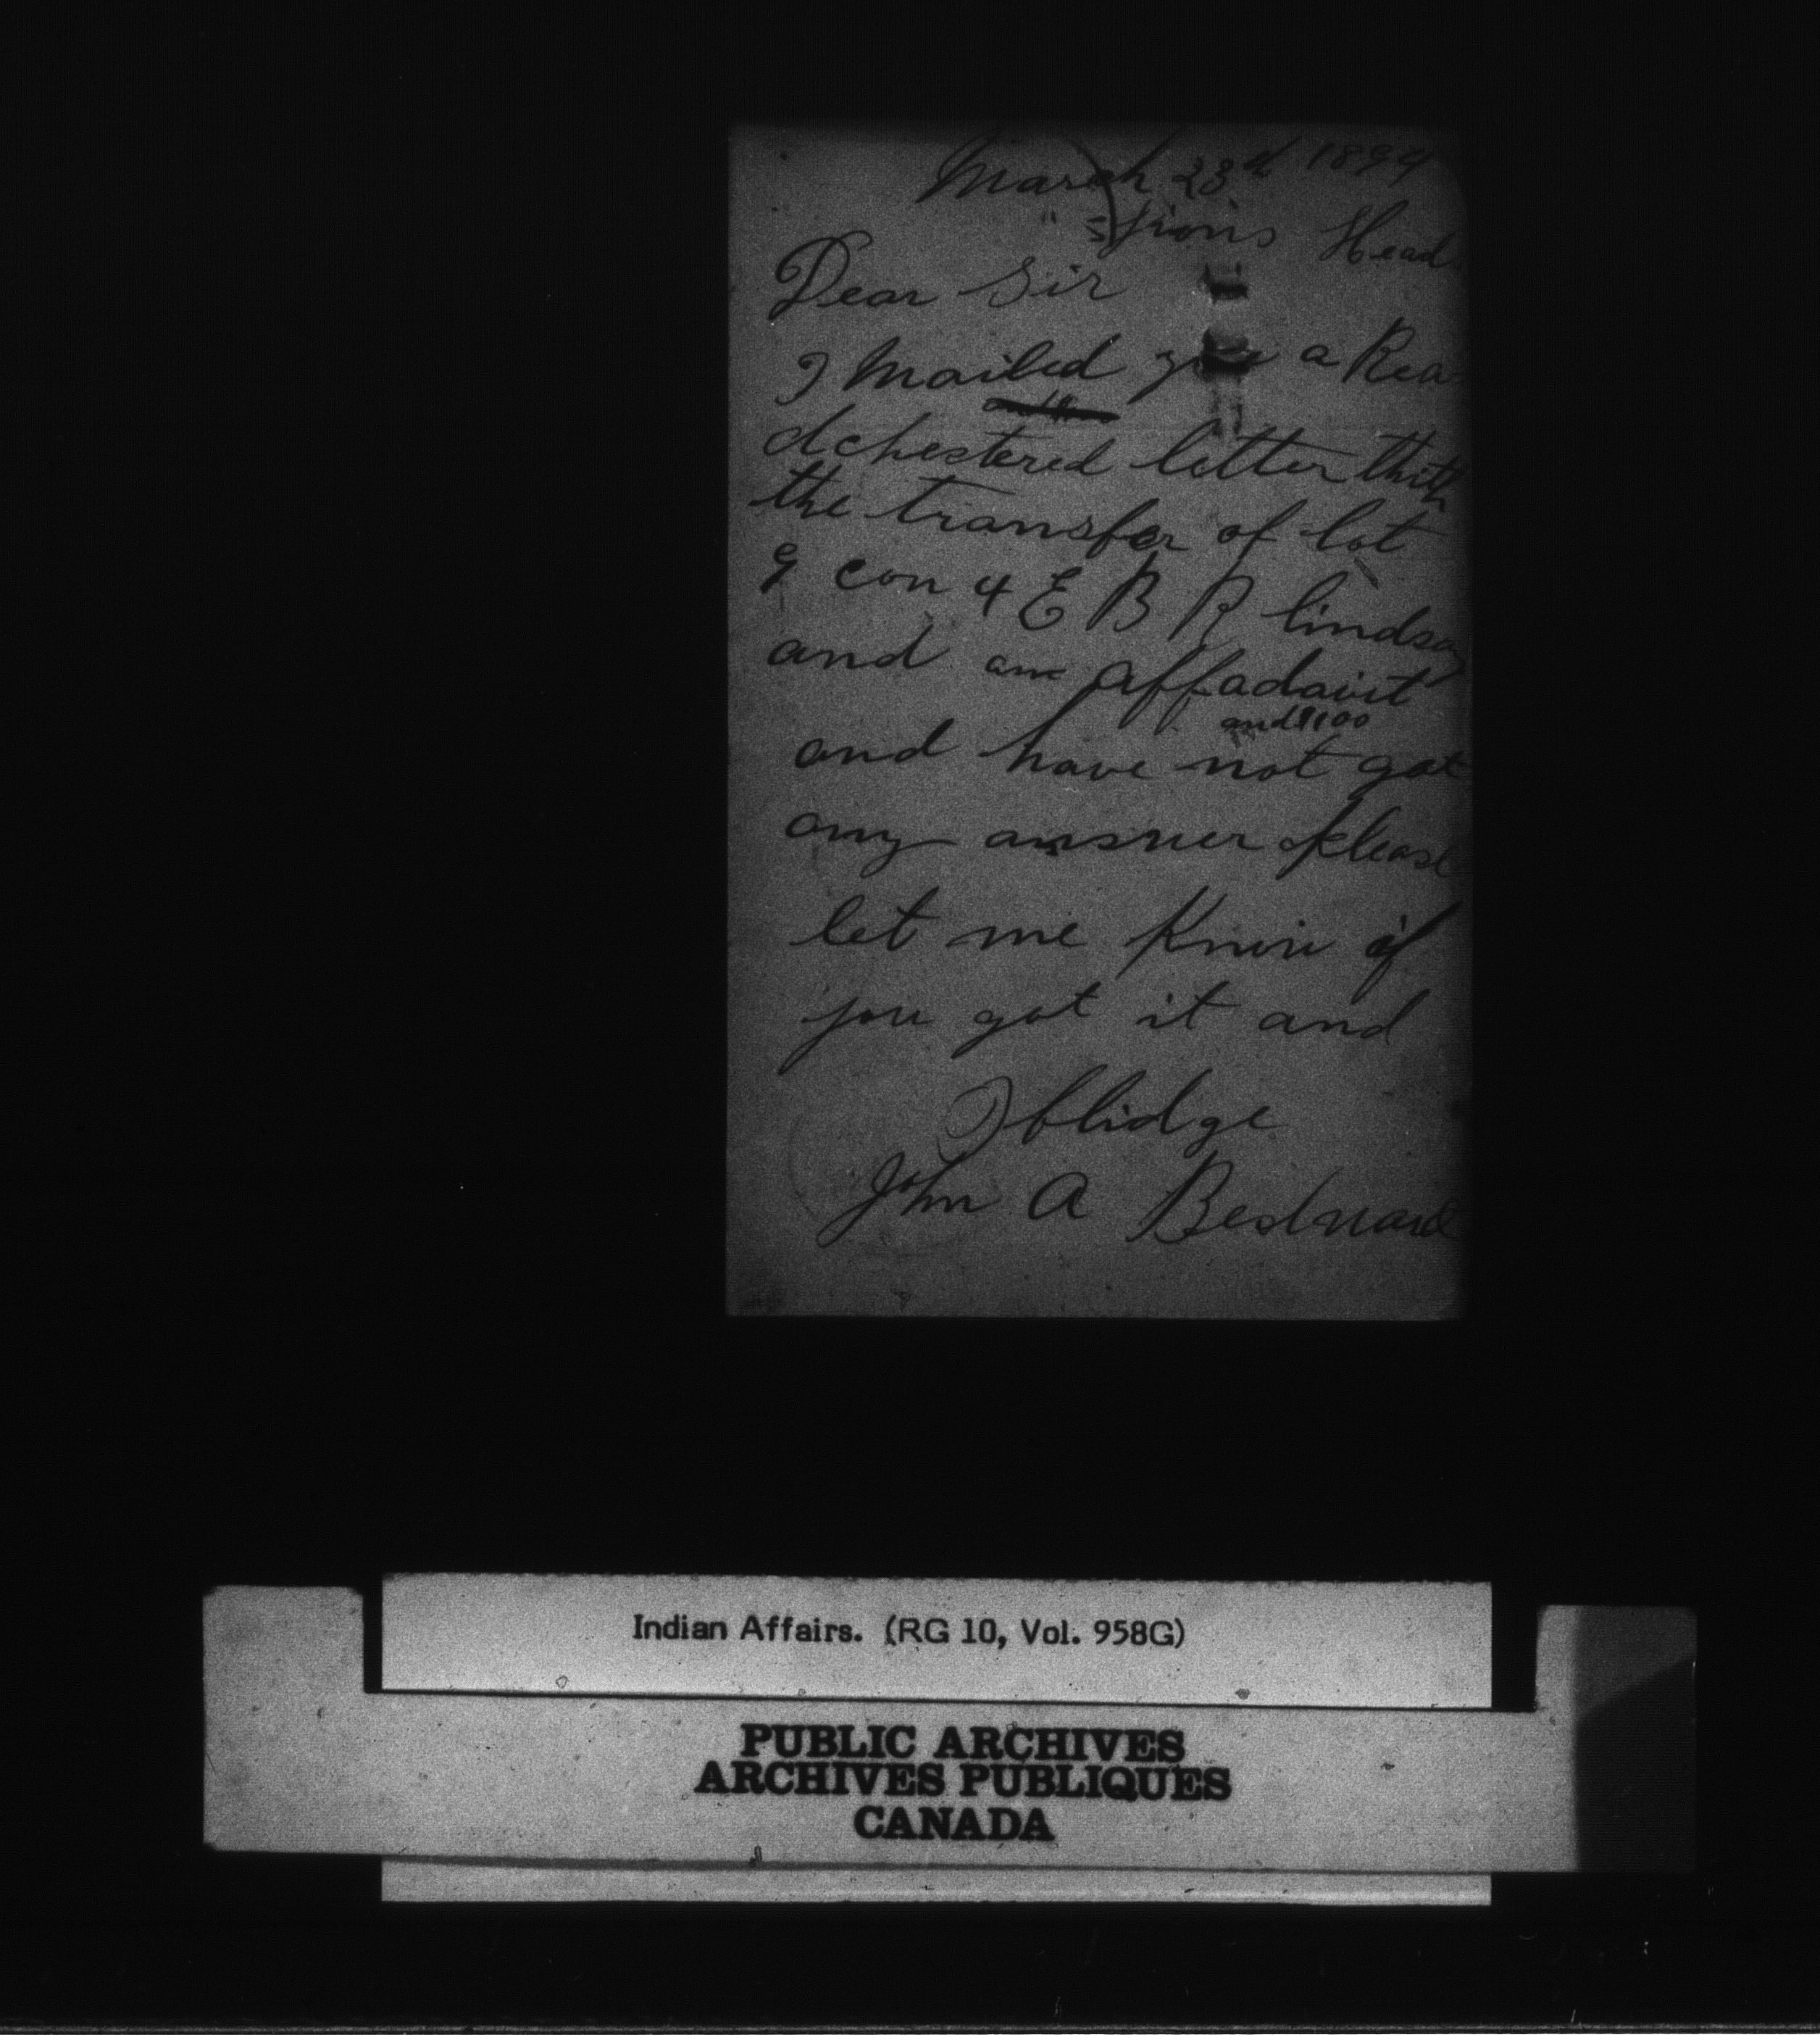 March 23rd 1899
" Lions Head
Dear Sir
I mailed you a Rea
dchestered letter thith
the transfer of lot
9 con 4 E B R lindsay
and an affadavit
and $1.00
and have not got
any answer please
let me know if
you got it and
Oblidge
John A Bestward
Indian Affairs. (RG 10, Vol. 958G)
PUBLIC ARCHIVES
ARCHIVES PUBLIQUES
CANADA